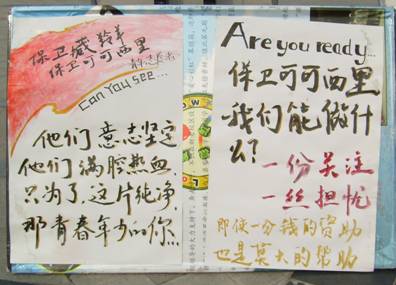 保卫藏羚羊
保卫可可西里
Can You see...
他们意志坚定
他们满腔热血
只为了这片纯净
那青春年少的你...
Are you ready...
保卫可可西里
我们能做什
么?
一份关注
一丝担忧
即使一分钱的资助
也是莫大的帮助